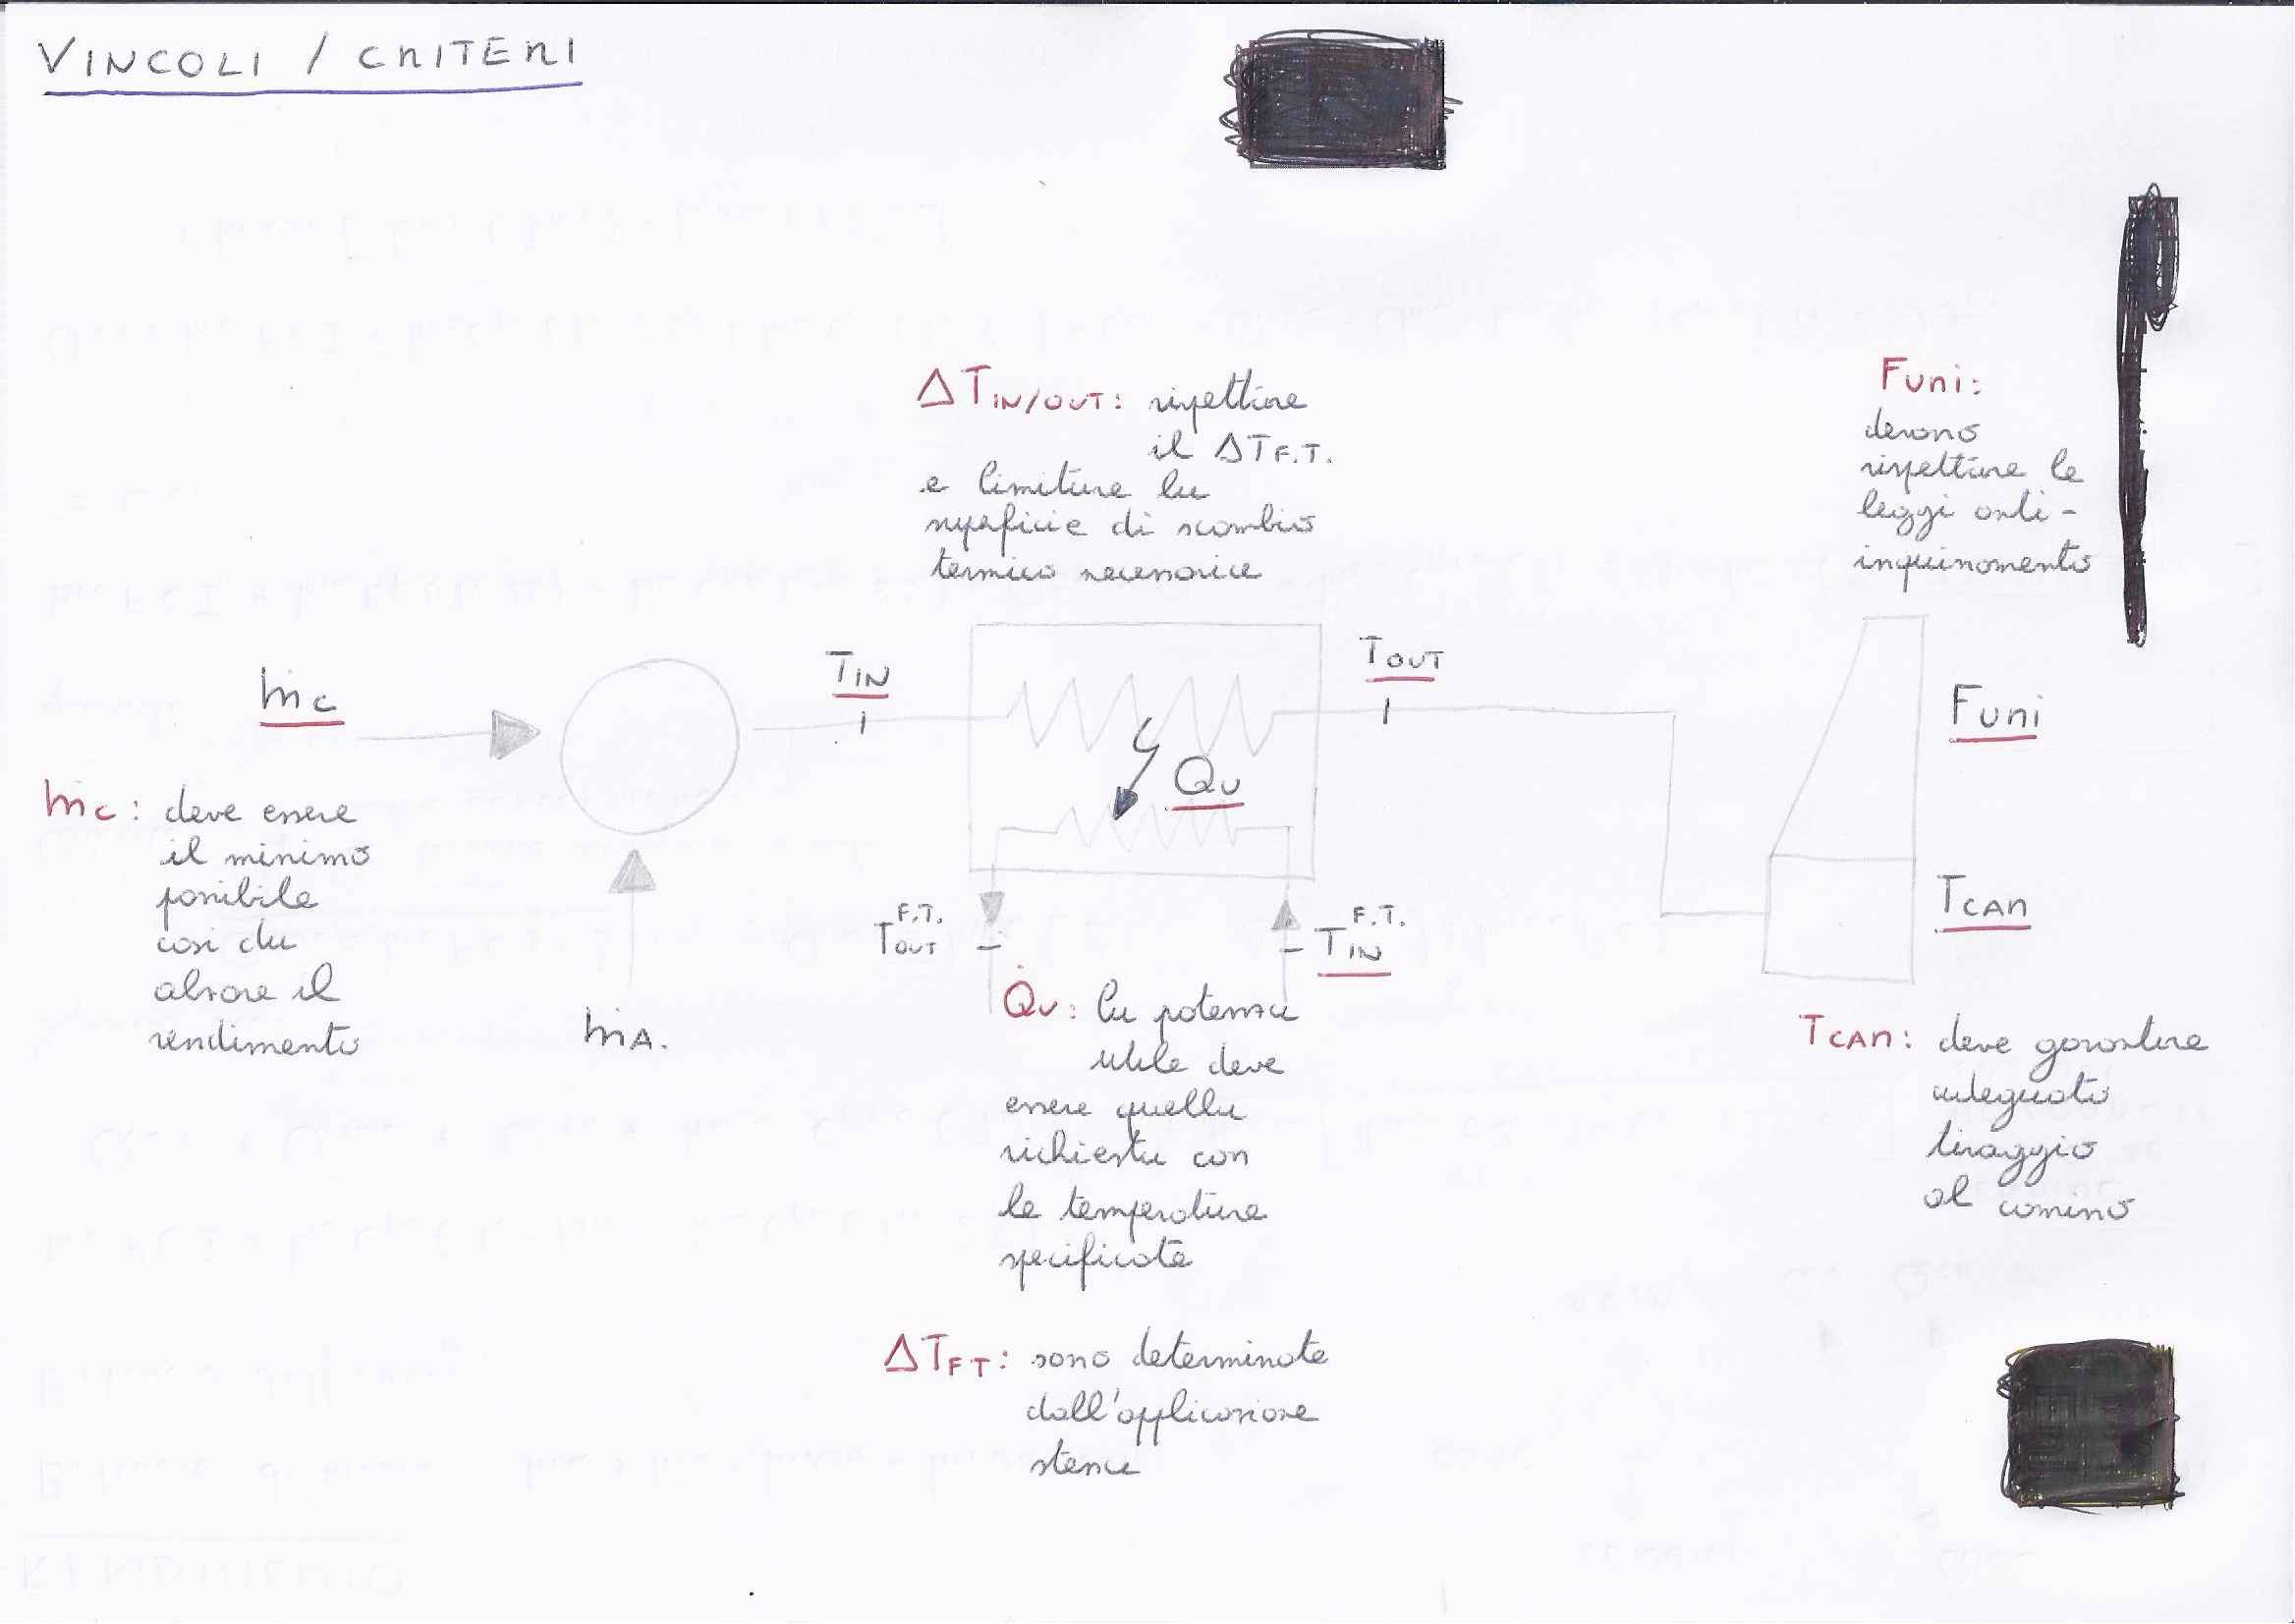 VINCOLI / CRITERI
ΔT IN/OUT: rispettare
il ΔT F.T.
e limitare la
superficie di scambio
termico necessaria
Fumi:
devono
rispettare le
leggi anti-
inquinamento
ṁc
T IN
T OUT
Fumi
Qu
ṁc: deve essere
il minimo
possibile
così da
alzare il
rendimento
T OUT F.T.
T IN F.T.
T CAN
ṁA.
Q̇u: la potenza
utile deve
essere quella
richiesta con
le temperature
specificate
T CAN: deve garantire
adeguato
tiraggio
al camino
ΔT FT: sono determinate
dall'applicazione
stessa